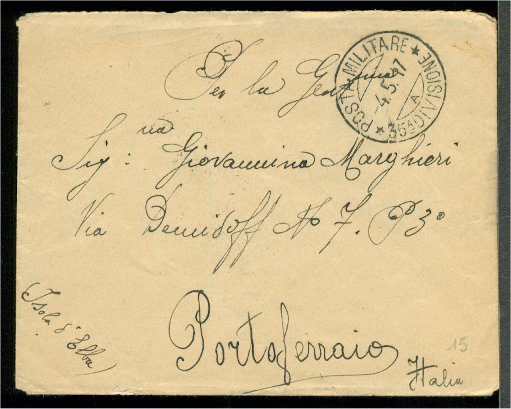 Per la Gen.ma
Sig:na Giovannina Marghieri
Via Demidoff No 7. P. 3o
Portoferraio
(Isola d'Elba)
Italia
POSTA MILITARE
35a DIVISIONE
4.5.17
A
15